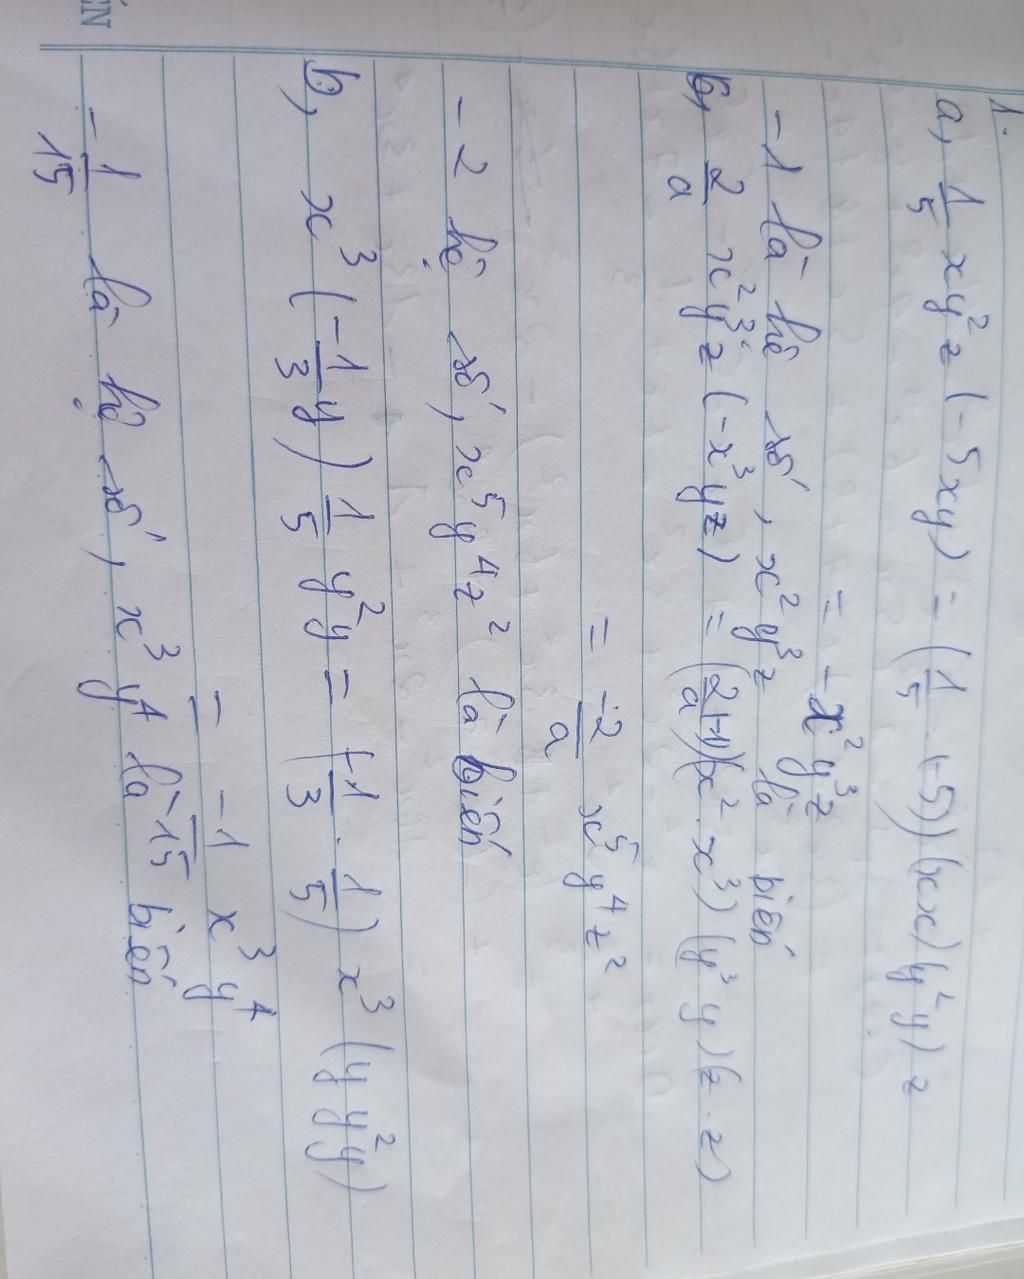 ÉN
1.
a, 1/5 xy²z (-5xy) = (1/5 . (-5)) (x x) (y² y) z
= - x² y³ z
- 1 là hê số, x² y³ z là biến
b, 2/a x² y³ z (-x³ y z) = (2/a (-1)) (x² . x³) (y³ y) (z . z)
= -2/a x⁵ y⁴ z²
- 2 hệ số, x⁵ y⁴ z² là biến
b, x³ (-1/3 y) 1/5 y² y = (-1/3 . 1/5) x³ (y y² y)
= -1/15 x³ y⁴
- 1/15 là hệ số, x³ y⁴ là biến